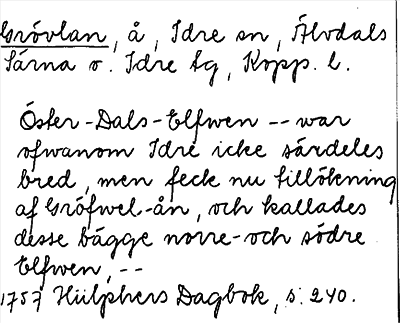 Grövlan, å, Idre sn, Älvdals
Särna o. Idre tg, Kopp. l.
Öster-Dals-Elfwen -- war
ofwanom Idre icke särdeles
bred, men feck nu tillökning
af Gröfwel-ån, och kallades
desse bägge norre- och södre
Elfwen, --
1757 Hülphers Dagbok, s. 240.